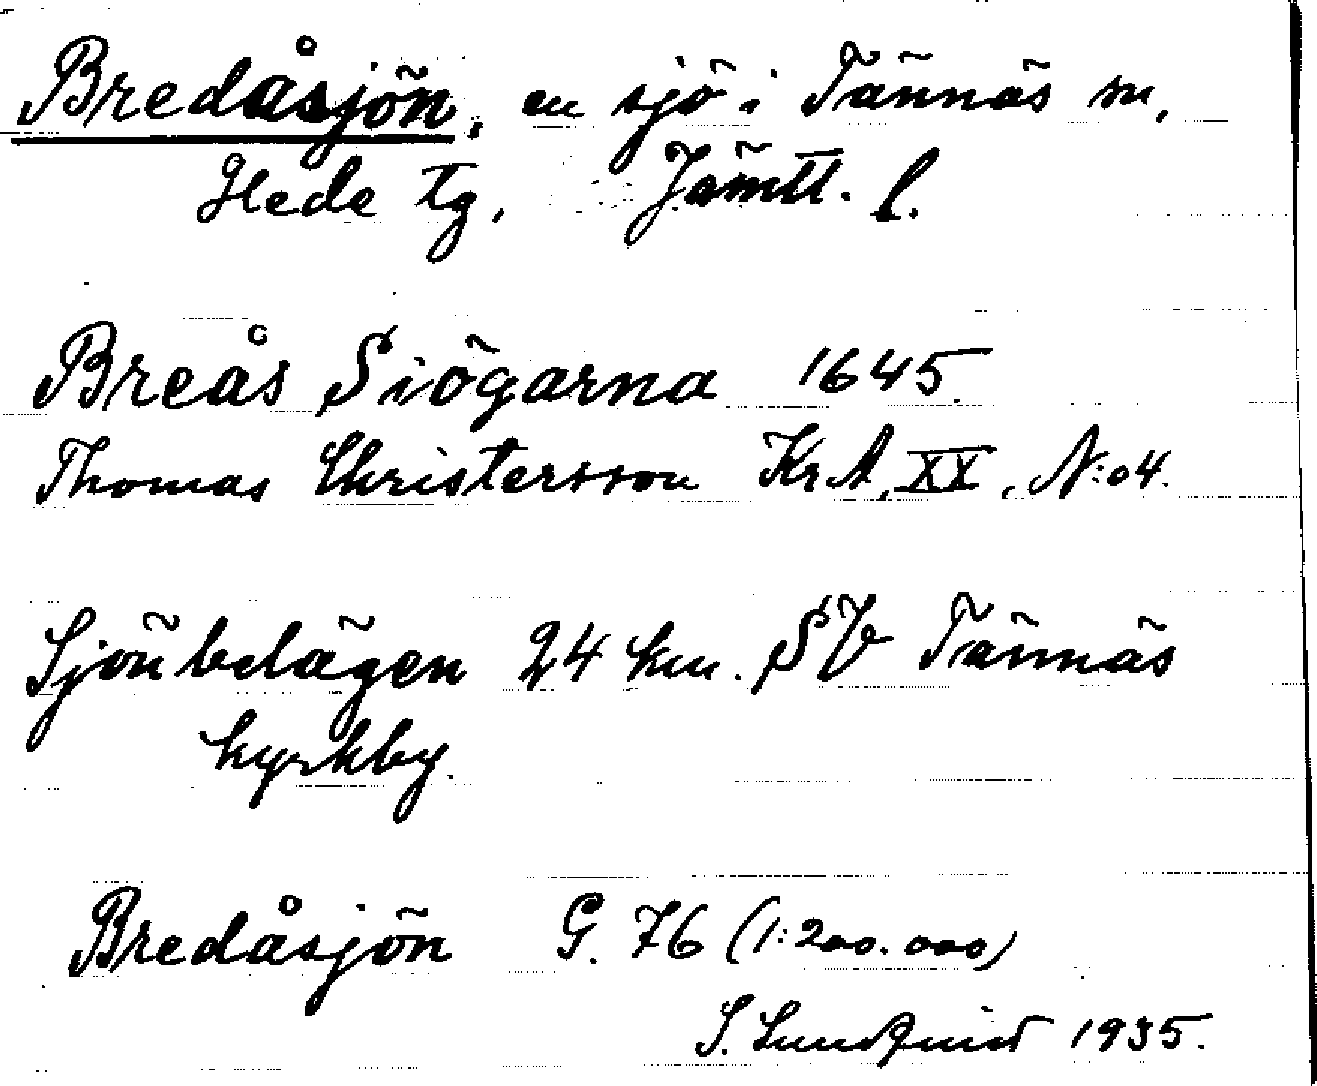 Bredåsjön, en sjö i Tännäs sn,
Hede tg, Jämtl. l.
Breås Siögarna 1645.
Thomas Christersson KrA, XX, N:o 4.
Sjön belägen 24 km. SV Tännäs
kyrkby.
Bredåsjön G. 76 (1:200.000)
S. Lundquist 1935.